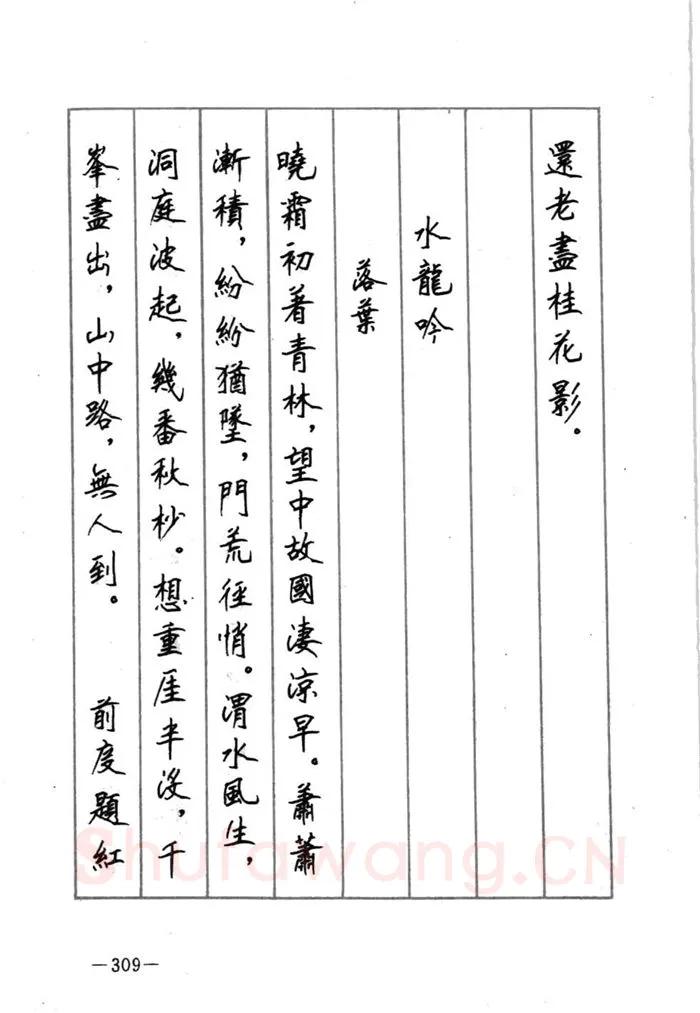 還老盡桂花影。
水龍吟
落葉
曉霜初著青林，望中故國淒涼早。蕭蕭
漸積，紛紛猶墜，門荒徑悄。渭水風生，
洞庭波起，幾番秋杪。想重厓半沒，千
峯盡出，山中路，無人到。　前度題紅
Shufawang.CN
—309—